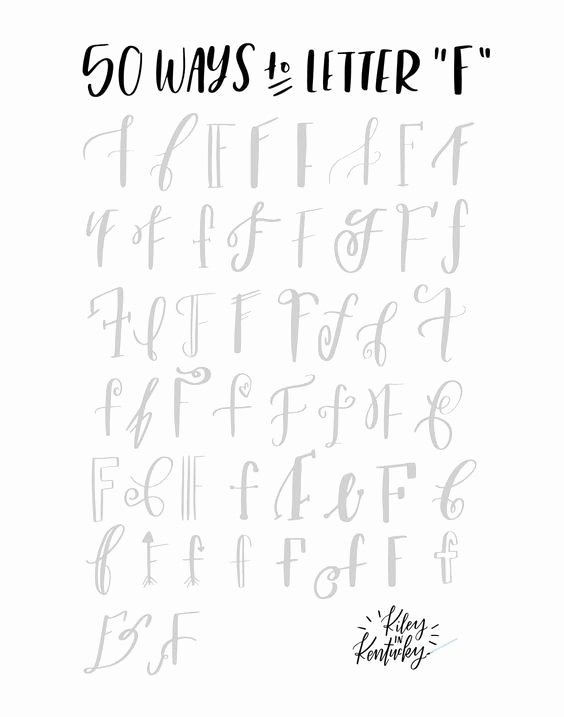 50 WAYS to LETTER "F"
F f F F F f F F
F F f F F F F f
F f F F F f f F
f f F f F f F f
F f F f F f F f
f F f f F f F f
F F
Kiley
IN
Kentucky